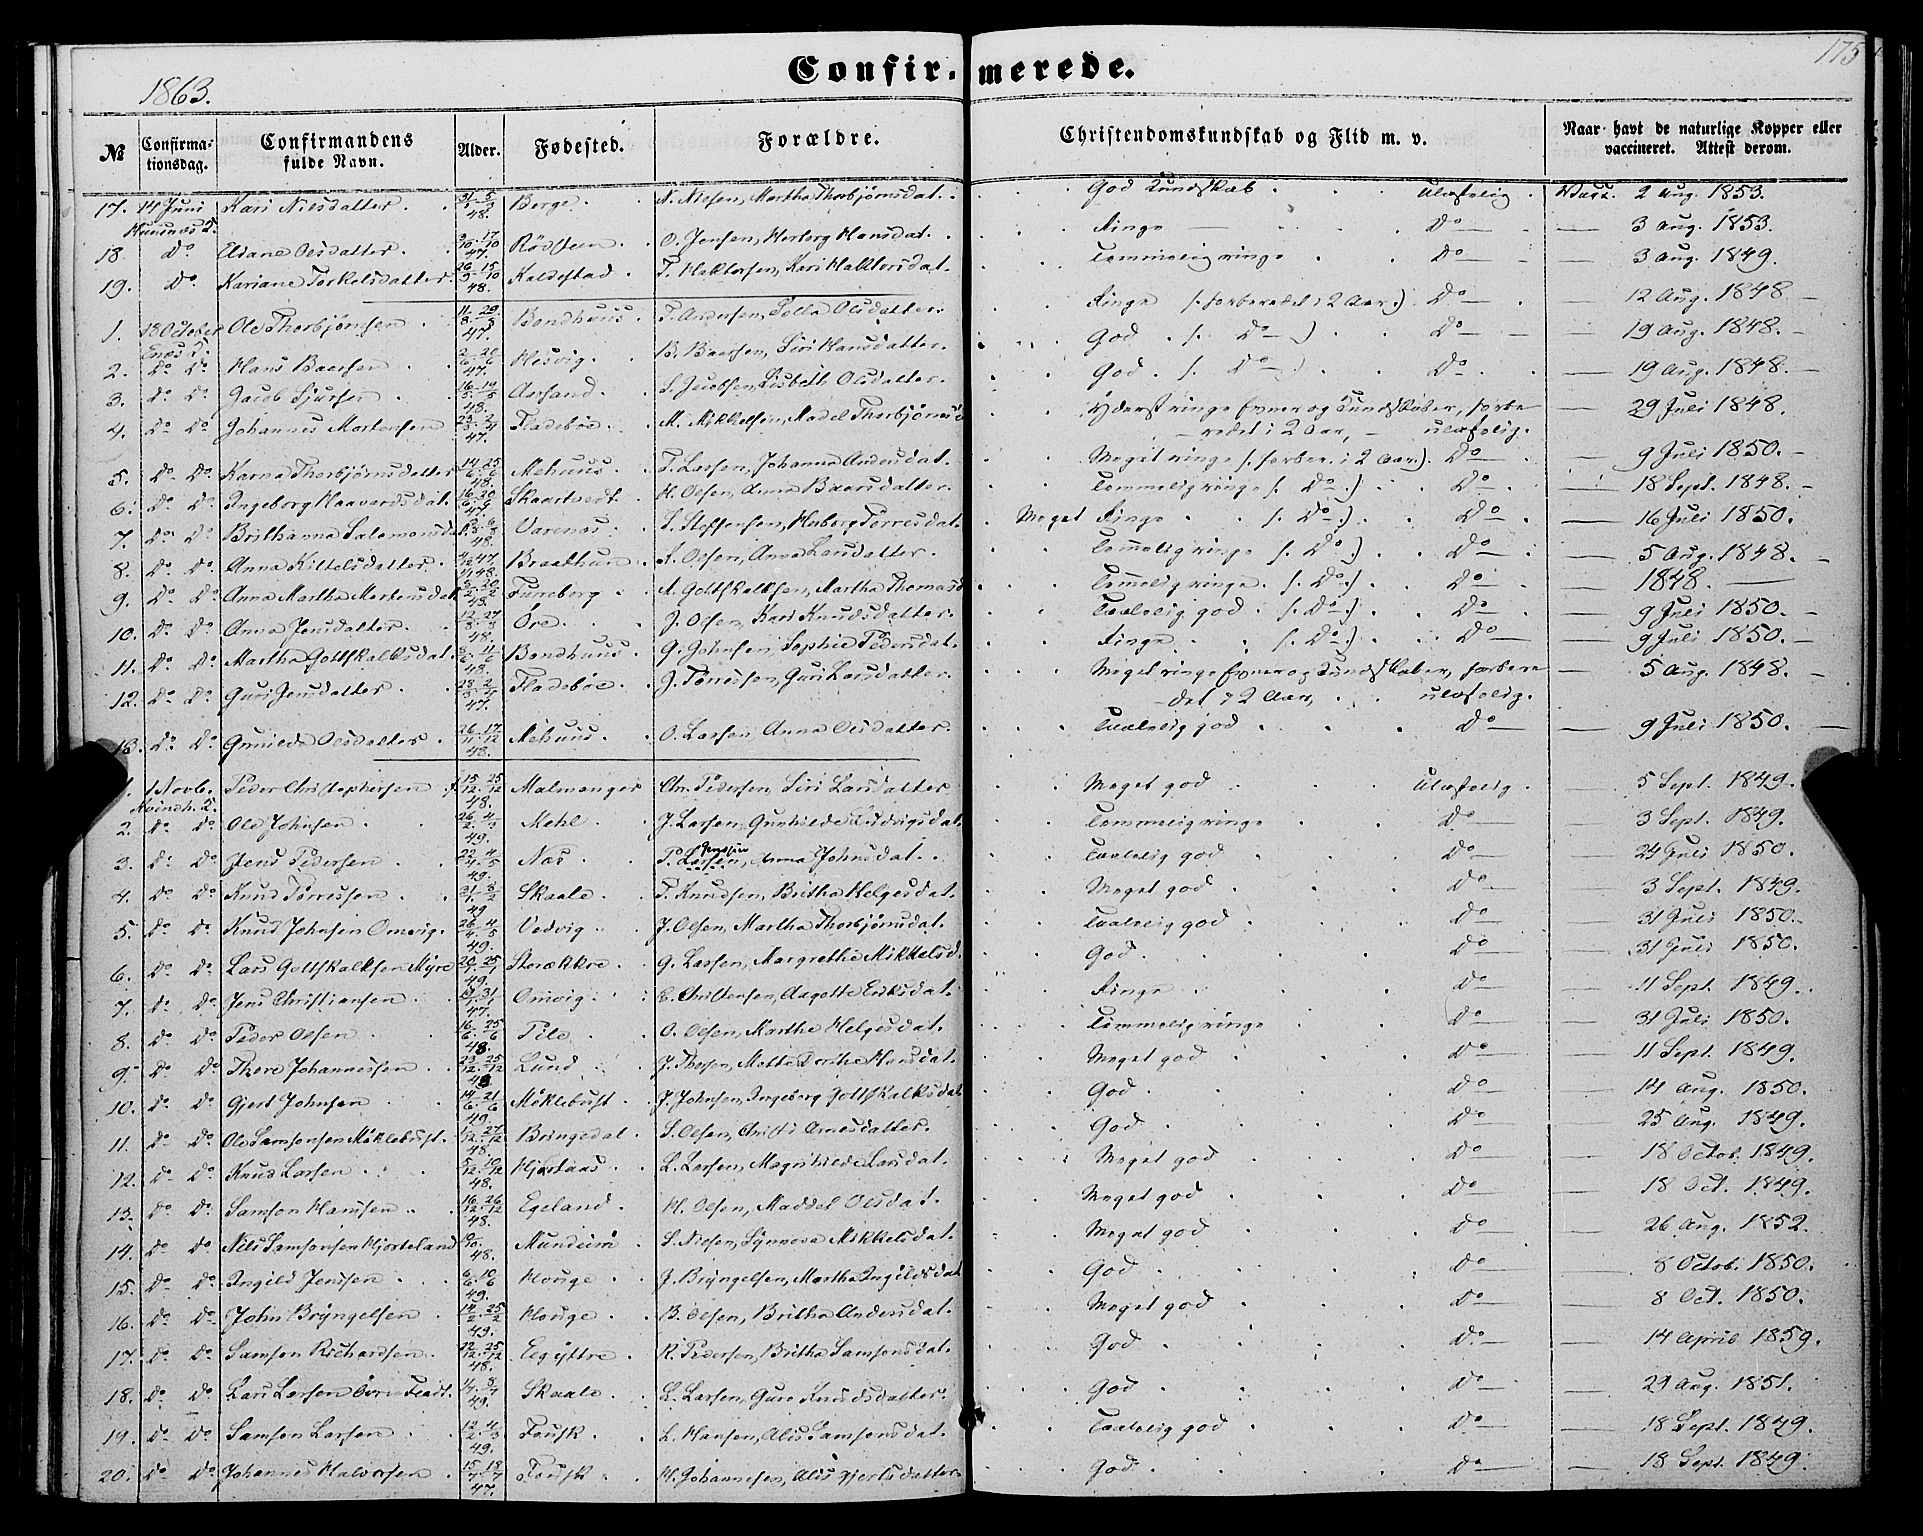 1863.
Confirmerede.
175
№
Confirmationsdag.
Confirmandens fulde Navn.
Alder.
Fødested.
Forældre.
Christendomskundskab og Flid m. v.
Naar havt de naturlige Kopper eller vaccineret. Attest derom.
17. 14 Juni Kari Nilsdatter. Berge. N. Nielsen, Martha Thorbjørnsdat. God Kundskab. Ulastelig. Vacc. 2 Aug. 1853.
18. Do Oldatter. O. Jensen, Herborg Hansdat. Ringe Do 3 Aug. 1853.
19. Do Kariane Torkelsdatter. 48. Kaldestad. T. Haktorsen, Kari Haktorsdat. Temmelig ringe Do 3 Aug. 1849.
1. 18 October Ole Thorbjørnsen 47. Bondhuus. T. Andersen, Olsdatter. Ringe (: forberedet i 2 Aar.) Do 12 Aug. 1848.
2. Do Do Hans Baarsen 47. Hesvig. B. Baarsen, Siri Hansdatter. God (: Do ) Do 19 Aug. 1848.
3. Do Do Jacob Sjursen 48. Aarsand. S. Jacobsen, Lisbeth Olsdatter. God. (: Do ) Do 19 Aug. 1848.
4. Do Do Johannes Mortensen 47. Fladebøe. M. Mikkelsen, Madel Thorbjørnsd. Yderst ringe Evner og Kundskaber, forbe
redet i 2 Aar, ulastelig. 29 Juli 1848.
5. Do Do Karna Thorbjørnsdatter 48. Mehuus. T. Larsen, Johanna Andersdat. Meget ringe (: forber. i 2 Aar.) Do 9 Juli 1850.
6. Do Do Ingeborg Haavardsdat. 47. Skaartvedt. H. Olsen, Anna Baarsdatter. Temmelig ringe (: Do :) Do 18 Sept. 1848.
7. Do Do Brithanna Salemonsdat. 48. S. Steffensen, Herborg Torresdat. Meget Ringe (: Do :) Do 16 Juli 1850.
8. Do Do Anna Kittelsdatter. K. Olsen, Anna Larsdatter. Temmelig ringe (: Do :) Do 5 Aug. 1848.
9. Do Do Anna Martha Mortensdat. 48. Fureberg. M. Gottskalksen, Martha Thomasd. Temmelig ringe. (: Do :) Do 1848.
10. Do Do Anna Jensdatter. 48. Øre. J. Olsen, Kari Knudsdatter. Taalelig god (: Do :) Do 9 Juli 1850.
11. Do Do Martha Gottskalksdat. Bondhuus. G. Johnsen, Sophie Pedersdat. Ringe. (: Do :) Do 9 Juli 1850.
12. Do Do Guri Jensdatter 47. Fladebøe. J. Tørresen, Guri Larsdatter. Meget ringe Evner og Kundskaber, forbere
det i 2 Aar, ulastelig. 5 Aug. 1848.
13. Do Do Gunilda Olsdatter. 48. Mehuus. O. Larsen, Anna Olsdatter. Taalelig god Do 9 Juli 1850.
1. 1 Novb. Peder Christophersen 48. Malmanger Chr. Pedersen, Siri Larsdatter Meget god Ulastelig. 5 Sept. 1849.
2. Do Do Ole Johnsen 49. Mehl. J. Larsen, Gunhilde Ludvigsdat. Temmelig ringe Do 3 Sept. 1849.
3. Do Do Jens Pedersen 49. Næs. P. Larsen, Jenssen Anna Johnsdat. Taalelig god Do 24 Juli 1850.
4. Do Do Knud Tørressen 49 Skaale. T. Knudsen, Britha Helgesdat. Meget god Do 3 Sept. 1849.
5. Do Do Knud Johnsen Omvig. 49. Vedvig J. Olsen, Martha Thorbjørnsdat. Taalelig god Do 31 Juli 1850.
6. Do Do Lars Gottskalksen Myre 49. Storækkre. G. Larsen, Margrethe Mikkelsd. God. Do 31 Juli 1850.
7. Do Do Jens Christiansen 47. Omvig. C. Christensen, Aagotte Eriksdat. Ringe Do 11 Sept. 1849.
8. Do Do Peder Olsen 48 Pile. O. Olsen, Marthe Helgesdat. Temmelig ringe Do 31 Juli 1850.
9. Do Do Thore Johannessen 48 Lund J. Thoresen, Mette Dorthe Hansdat. Meget god Do 11 Sept. 1849.
10. Do Do Gjert Johnsen 49. Møklebust. J. Johnsen, Ingeborg Gottskalksdat. God Do 14 Aug. 1850.
11. Do Do Ole Samsonsen Møklebust. 48. Bringedal. S. Olsen, Christi Arnesdatter. God. Do 25 Aug. 1849.
12. Do Do Knud Larsen 48. Hjortaas. L. Larsen, Magnhilde Larsdat. Meget god Do 18 Octob. 1849.
13. Do Do Samson Hansen 48. Egeland. H. Olsen, Maddel Olsdat. Meget god Do 18 Oct. 1849.
14. Do Do Nils Samsonsen Hjorteland 48. Mundeim. S. Nielsen, Synneva Mikkelsdat. Meget god Do 26 Aug. 1852.
15. Do Do Ingild Jenssen 49. Houge. J. Bryngelsen, Martha Ingildsdat. God Do 8 Octob. 1850.
16. Do Do John Bryngelsen 49. Houge. B. Olsen, Britha Andersdat. Meget god Do 8 Oct. 1850.
17. Do Do Samson Richardsen. 48. R. Pedersen, Britha Samsonsdat. God Do 14 April 1859.
18. Do Do Lars Larsen 49. Skaale. L. Larsen, Guro Knudsdatter. God Do 29 Aug. 1851.
19. Do Do Samson Larsen 49. Tousk. L. Hansen, Alis Samsonsdat. Taalelig god Do 18 Sept. 1849.
20. Do Do Johannes Halvorsen 47. Tousk. H. Johannesen, Alis Gjertsdatter. God Do 18 Sept. 1849.